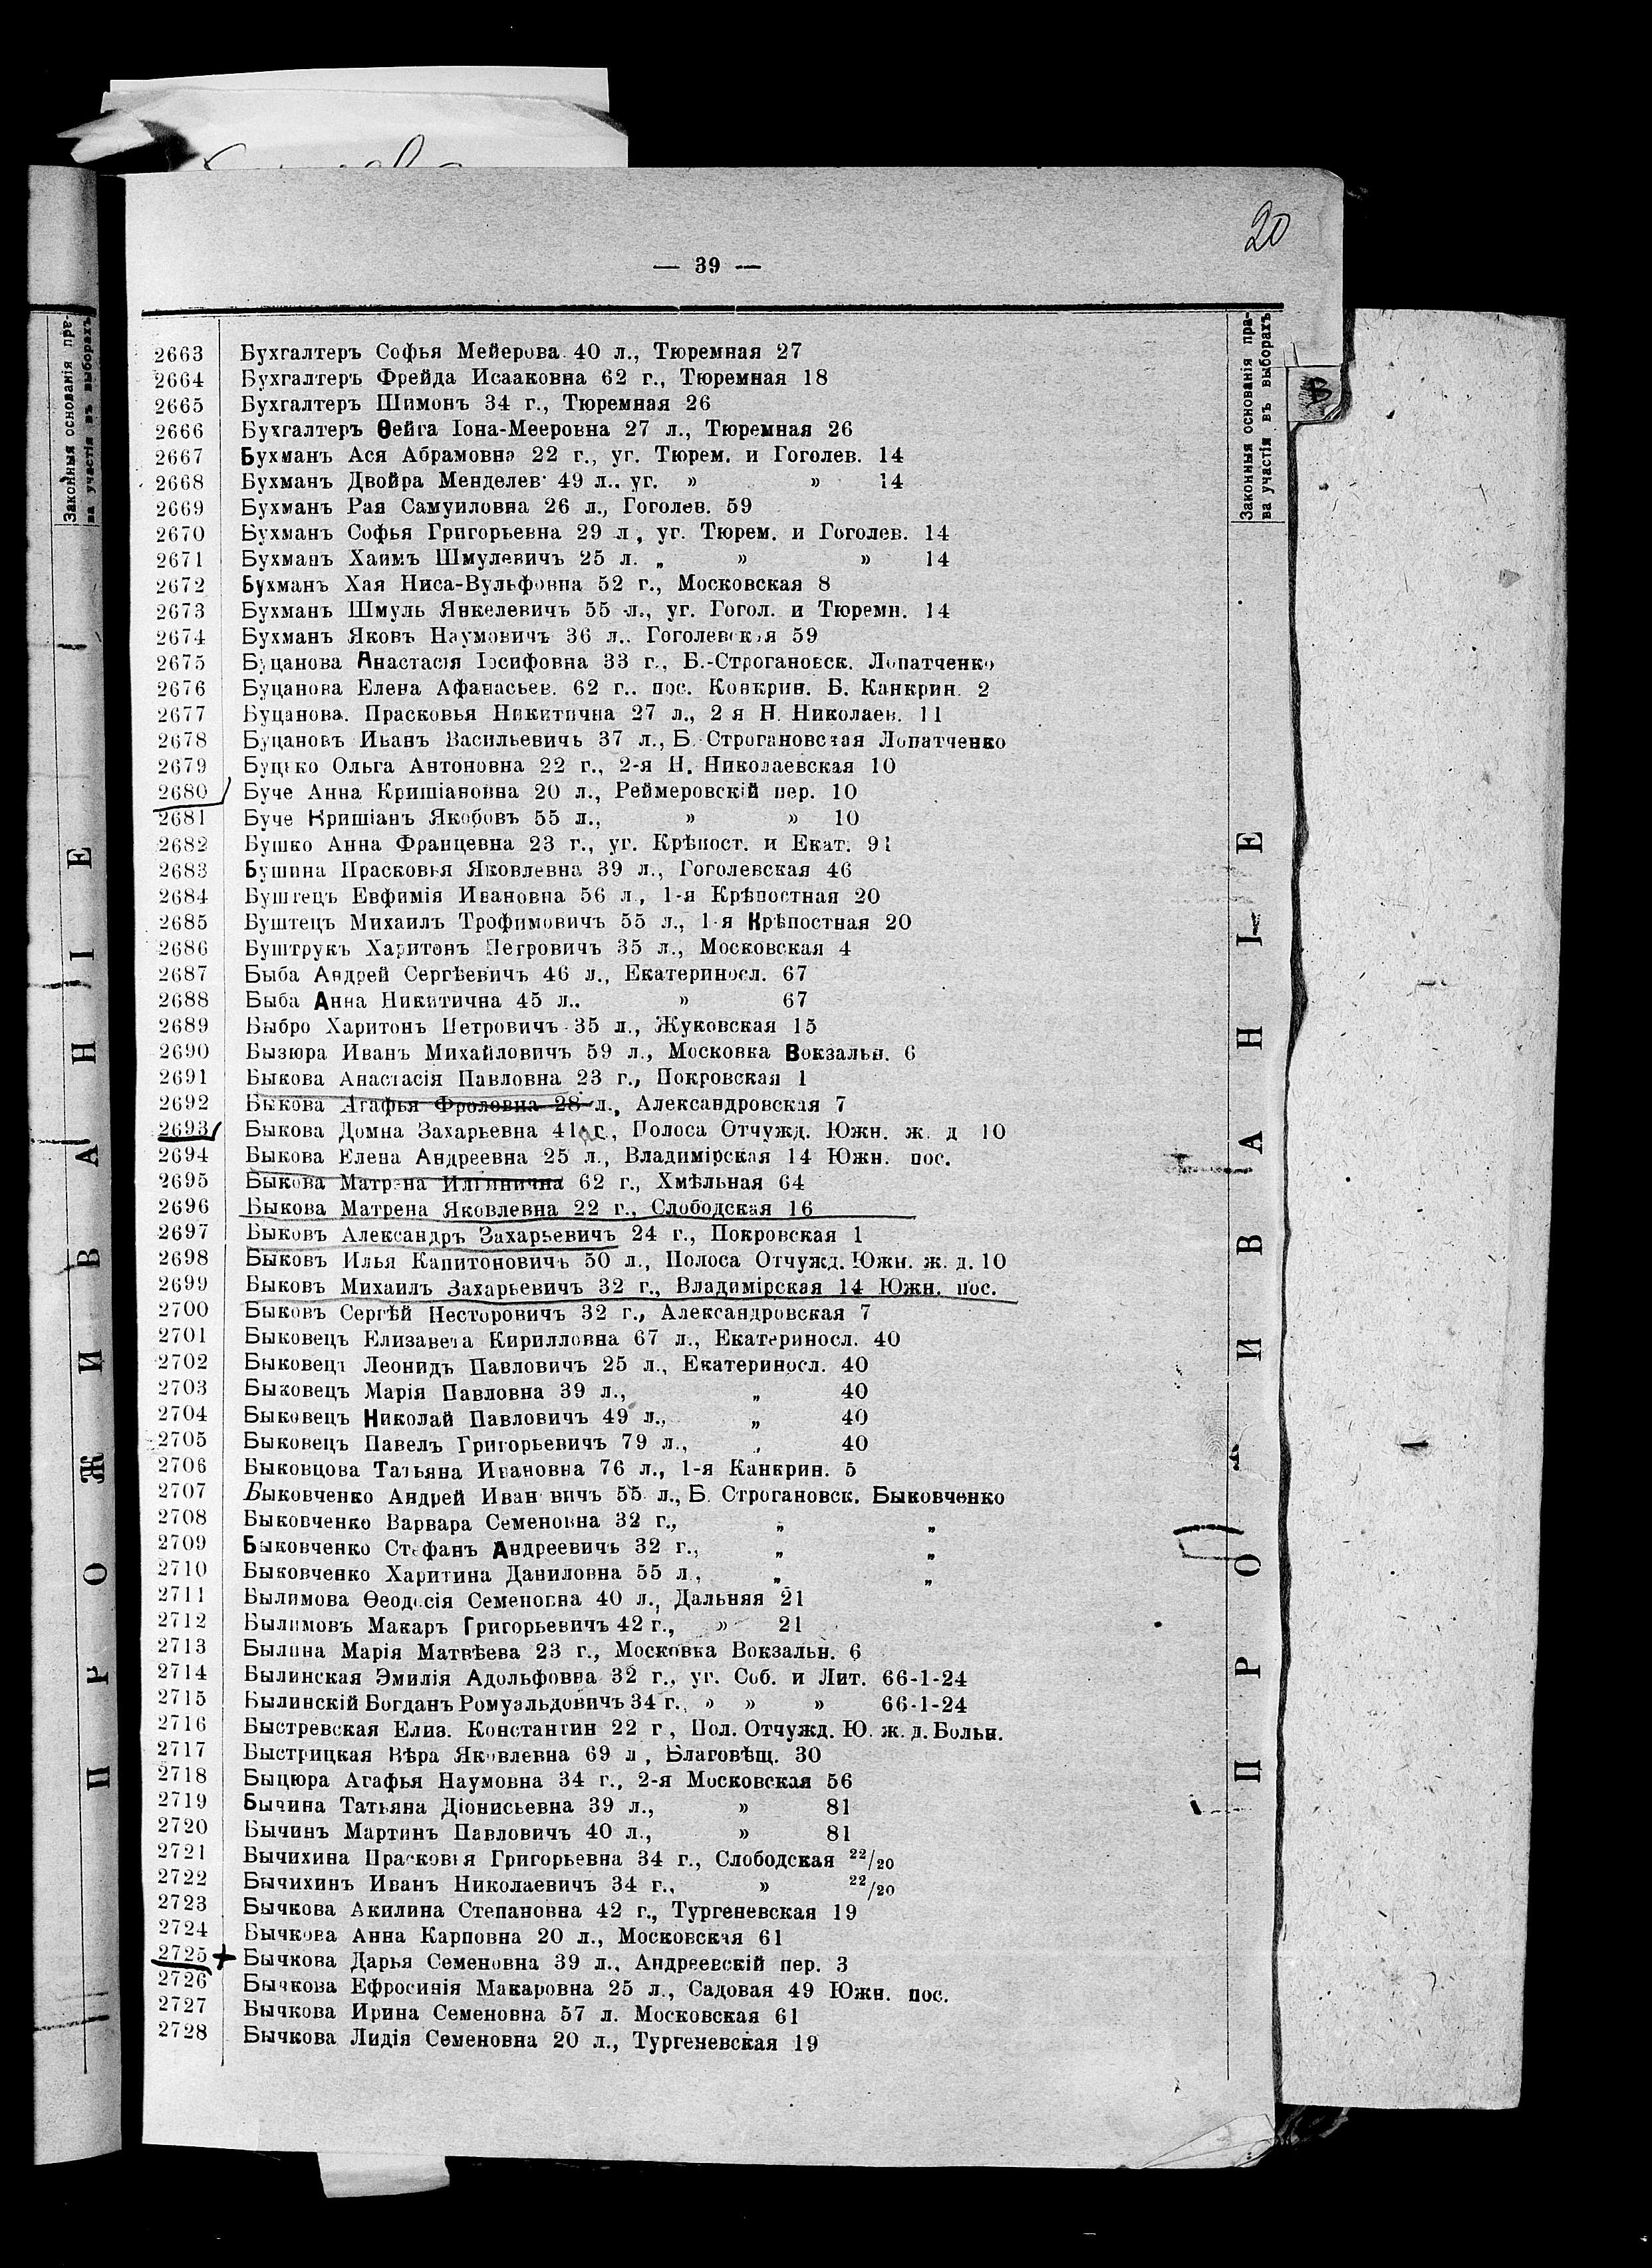 20
— 39 —
Законныя основанія пра-
ва участія въ выборахъ
2663 Бухгалтеръ Софья Мейерова 40 л., Тюремная 27
2664 Бухгалтеръ Фрейда Исааковна 62 г., Тюремная 18
2665 Бухгалтеръ Шимонъ 34 г., Тюремная 26
2666 Бухгалтеръ Ѳейга Іона-Мееровна 27 л., Тюремная 26
2667 Бухманъ Ася Абрамовна 22 г., уг. Тюрем. и Гоголев. 14
2668 Бухманъ Двойра Менделев 49 л.. уг. » » 14
2669 Бухманъ Рая Самуиловна 26 л., Гоголев. 59
2670 Бухманъ Софья Григорьевна 29 л, уг. Тюрем. и Гоголев. 14
2671 Бухманъ Хаимъ Шмулевичъ 25 л. „ » » 14
2672 Бухманъ Хая Ниса-Вульфовна 52 г., Московская 8
2673 Бухманъ Шмуль Янкелевичъ 55 л., уг. Гогол. и Тюремн. 14
2674 Бухманъ Яковъ Наумовичъ 36 л.. Гоголевская 59
2675 Буцанова Анастасія Іосифовна 33 г., Б.-Строгановск. Лопатченко
2676 Буцанова Елена Афанасьев. 62 г.. пос. Конкрин. Б. Канкрин. 2
2677 Буцанова. Прасковья Никитична 27 л., 2 я Н. Николаев. 11
2678 Буцановъ Иванъ Васильевичъ 37 л., Б. Строгановская Лопатченко
2679 Ольга Антоновна 22 г., 2-я Н. Николаевская 10
2680 Буче Анна Кришіановна 20 л., Реймеровскій пер. 10
2681 Буче Кришіанъ Якобовъ 55 л., » » 10
2682 Бушко Анна Францевна 23 г., уг. Крѣпост. и Екат. 91
2683 Бушина Прасковья Яковлевна 39 л., Гоголевская 46
2684 Буштецъ Евфимія Ивановна 56 л., 1-я Крѣпостная 20
2685 Буштецъ Михаилъ Трофимовичъ 55 л., 1-я Крѣпостная 20
2686 Буштрукъ Харитонъ Петровичъ 35 л., Московская 4
2687 Быба Андрей Сергѣевичъ 46 л., Екатериносл. 67
2688 Быба Анна Никитична 45 л.. » 67
2689 Быбро Харитонъ Петровичъ 35 л., Жуковская 15
2690 Бызюра Иванъ Михайловичъ 59 л., Московка Вокзальн. 6
2691 Быкова Анастасія Павловна 23 г., Покровская 1
2692 Быкова Агафья Фроловна 28 л., Александровская 7
2693 Быкова Домна Захарьевна 41 г., Полоса Отчужд. Южн. ж. д 10
2694 Быкова Елена Андреевна 25 л., Владимірская 14 Южн. пос.
2695 Быкова Матрена 62 г., Хмѣльная 64
2696 Быкова Матрена Яковлевна 22 г., Слободская 16
2697 Быковъ Александръ Захарьевичъ 24 г., Покровская 1
2698 Быковъ Илья Капитоновичъ 50 л., Полоса Отчужд. Южн. ж. д. 10
2699 Быковъ Михаилъ Захарьевичъ 32 г., Владимірская 14 Южн. пос.
2700 Быковъ Сергѣй Несторовичъ 32 г., Александровская 7
2701 Быковецъ Елизавета Кирилловна 67 л., Екатериносл. 40
2702 Быковецъ Леонидъ Павловичъ 25 л., Екатериносл. 40
2703 Быковецъ Марія Павловна 39 л., „ 40
2704 Быковецъ Николай Павловичъ 49 л., „ 40
2705 Быковецъ Павелъ Григорьевичъ 79 л., „ 40
2706 Быковцова Татьяна Ивановна 76 л., 1-я Канкрин. 5
2707 Быковченко Андрей Иван вичъ 55 л., Б. Строгановск. Быковченко
2708 Быковченко Варвара Семеновна 32 г., „ „
2709 Быковченко Стефанъ Андреевичъ 32 г., „ „
2710 Быковченко Харитина Даниловна 55 л., „ „
2711 Былимова Ѳеодосія Семеновна 40 л., Дальняя 21
2712 Былимовъ Макаръ Григорьевичъ 42 г., » 21
2713 Былина Марія Матвѣева 23 г., Московка Вокзальн. 6
2714 Былинская Эмилія Адольфовна 32 г., уг. Соб. и Лит. 66-1-24
2715 Былинскій Богданъ Ромуальдовичъ 34 г., » » » 66-1-24
2716 Быстревская Елиз. Константин 22 г, Пол. Отчужд. Ю. ж. д. Больн.
2717 Быстрицкая Вѣра Яковлевна 69 л, Благовѣщ. 30
2718 Быцюра Агафья Наумовна 34 г., 2-я Московская 56
2719 Бычина Татьяна Діонисьевна 39 л., » 81
2720 Бычинъ Мартинъ Павловичъ 40 л., » 81
2721 Бычихина Прасковья Григорьевна 34 г., Слободская 22/20
2722 Бычихинъ Иванъ Николаевичъ 34 г., » 22/20
2723 Бычкова Акилина Степановна 42 г., Тургеневская 19
2724 Бычкова Анна Карповна 20 л., Московская 61
2725 + Бычкова Дарья Семеновна 39 л., Андреевскій пер. 3
2726 Бычкова Ефросинія Макаровна 25 л., Садовая 49 Южн. пос.
2727 Бычкова Ирина Семеновна 57 л. Московская 61
2728 Бычкова Лидія Семеновна 20 л., Тургеневская 19
Законныя основанія пра-
ва участія въ выборахъ
ПРОЖИВАНІЕ
В
ПРОЖИВАНІЕ